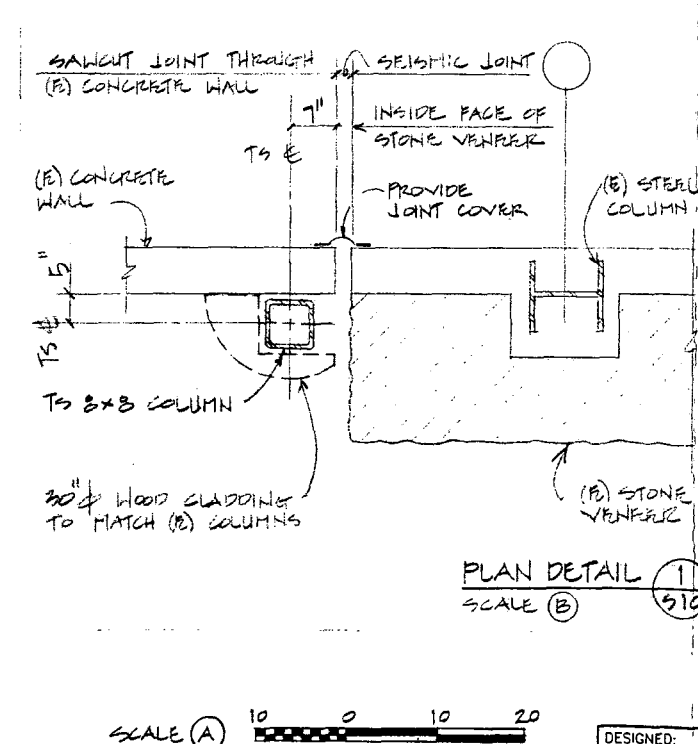 SAWCUT JOINT THROUGH
(E) CONCRETE WALL
SEISMIC JOINT
7"
INSIDE FACE OF
STONE VENEER
TS ℄
(E) CONCRETE
WALL
PROVIDE
JOINT COVER
(E) STEEL
COLUMN
5"
TS ℄
TS 8x8 COLUMN
30"ϕ WOOD CLADDING
TO MATCH (E) COLUMNS
(E) STONE
VENEER
PLAN DETAIL 1
SCALE B
SCALE A
10 0 10 20
DESIGNED: